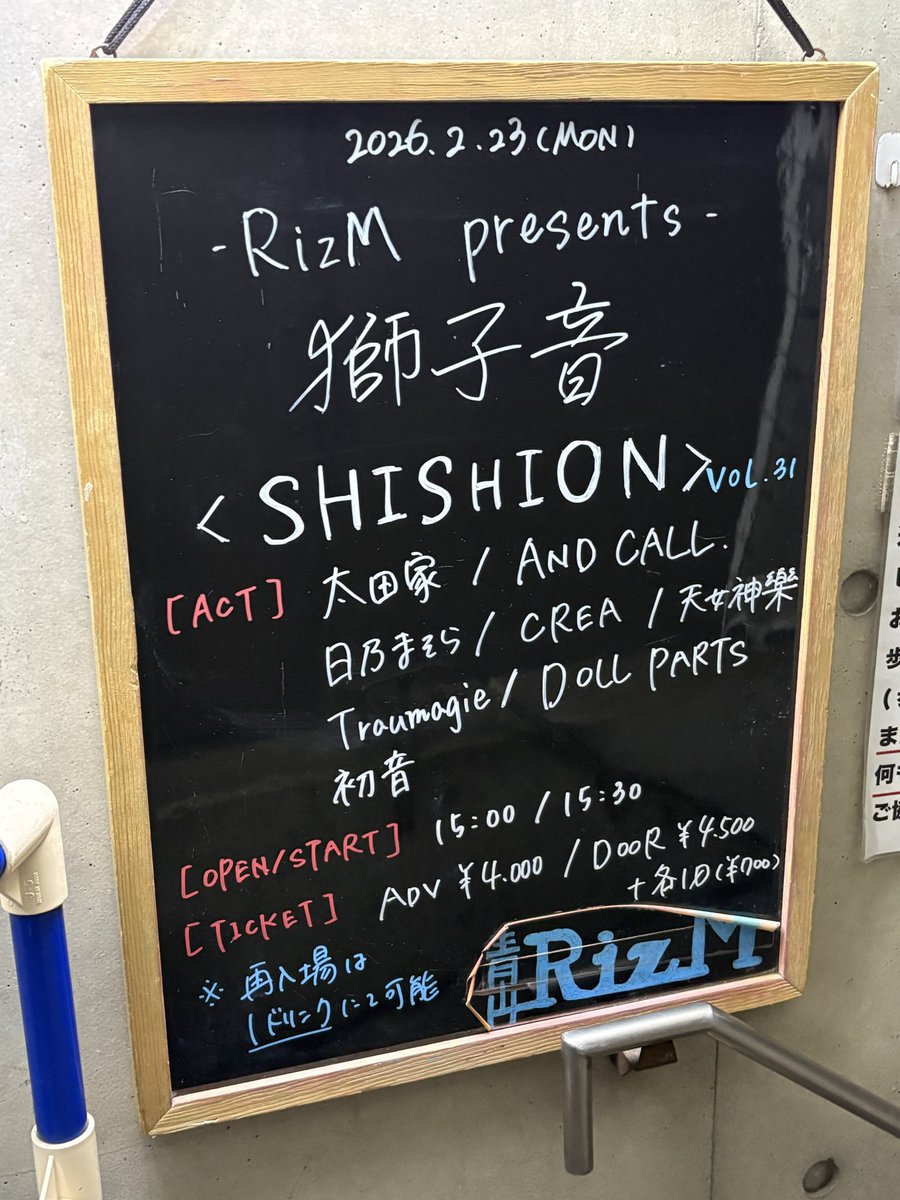 2026.2.23(MON)
-RizM presents-
獅子音
<SHISHION> VOL.31
[ACT] 太田家 / AND CALL.
日乃まそら / CREA / 天女神樂
Traumagie / DOLL PARTS
初音
[OPEN/START] 15:00 / 15:30
[TICKET] ADV ¥4.000 / DOOR ¥4.500
+各1D(¥700)
※ 再入場は
1ドリンクにて可能
青山RizM
お
歩
ま
何
ご協